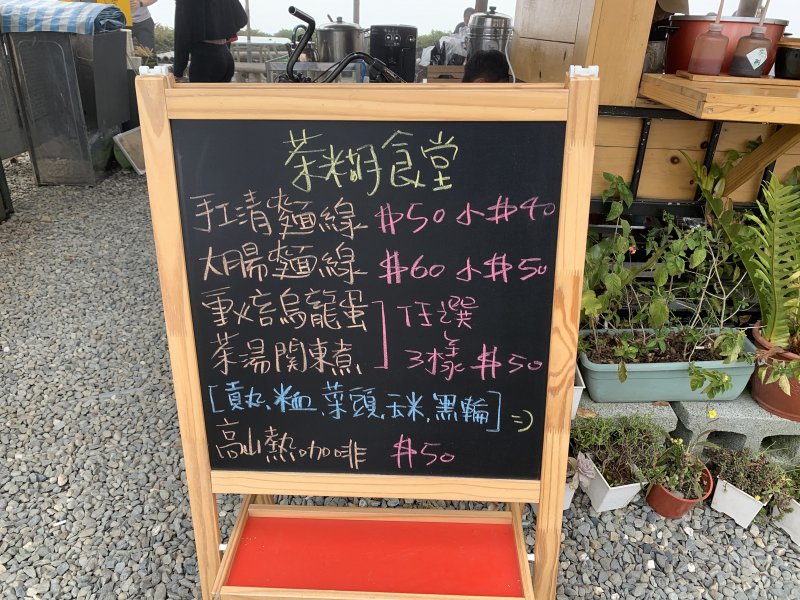 茶米糊食堂
手工清麵線 $50 小$40
大腸麵線 $60 小$50
重焙烏龍蛋 任選
茶湯関東煮 3樣 $50
[貢丸.米血.菜頭.玉米.黑輪] =)
高山熱咖啡 $50